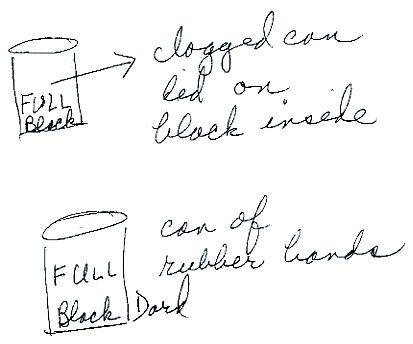 clogged can
lid on
FULL
Black
black inside
can of
rubber bands
FULL
Black Dark